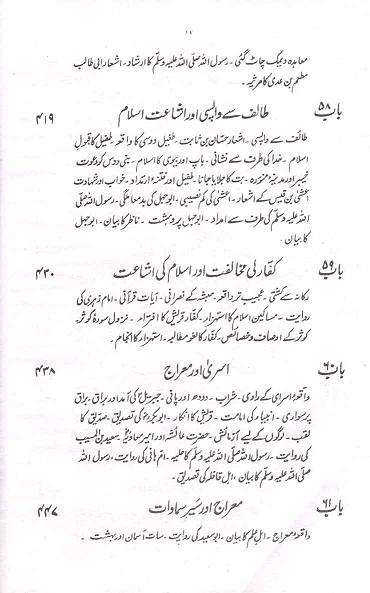 ۱۴
معاہدہ دیمک چاٹ گئی۔ رسول اللہ صلی اللہ علیہ وسلّم کا ارشاد۔ اشعار ابی طالب
مطعم بن عدی کا مرثیہ۔
باب ۵۸ طائف سے واپسی اور اشاعت اسلام ۴۱۹
طائف سے واپسی۔ اشعار حسان بن ثابت۔ طفیل دوسی کا واقعہ۔ طفیل کا قبولِ
اسلام۔ خدا کی طرف سے نشانی۔ باپ اور بیوی کا اسلام۔ بنی دوس کو دعوت
خیبر اور مدینہ منورہ۔ بت کا جلایا جانا۔ طفیل اور فتنۂ ارتداد۔ خواب اور شہادت
اعشیٰ بن قیس کے اشعار۔ اعشیٰ کی کم نصیبی۔ ابوجہل کی بدمعاملگی۔ رسول اللہ صلی
اللہ علیہ وسلّم کی طرف سے امداد۔ ابوجہل پر دہشت۔ ناظر کا بیان۔ ابوجہل
کا بیان۔
باب ۵۹ کفّار کی مخالفت اور اسلام کی اشاعت ۴۳۰
رکانہ سے کشتی۔ عجیب تر واقعہ۔ حبشہ کے نصرانی۔ آیات قرآنی۔ امام زہری کی
روایت۔ مساکین اسلام کا استہزاء۔ کفّار قریش کا افتراء۔ نزول سورۂ کوثر۔
کوثر کے اوصاف و خصائص۔ کفّار کا لغو مطالبہ۔ استہزاء کا انجام۔
باب ۶۰ اسریٰ اور معراج ۴۳۸
واقعۂ اسریٰ کے راوی۔ شراب۔ دودھ اور پانی۔ جبریلؑ کی آمد اور براق۔ براق
پر سواری۔ انبیاء کی امامت۔ قریش کا انکار۔ ابوبکرؓ کی تصدیق۔ صدّیق کا
لقب۔ لوگوں کے لیے آزمائش۔ حضرت عائشہؓ اور امیر معاویہؓ۔ سعید بن المسیب
کی روایت۔ رسول اللہ صلی اللہ علیہ وسلّم کا حلیہ۔ ام ہانی کی روایت، رسول اللہ
صلی اللہ علیہ وسلّم کا بیان، اہل قافلہ کی تصدیق۔
باب ۶۱ معراج اور سَیرِ سماوات ۴۴۷
واقعۂ معراج۔ اہلِ علم کا بیان۔ ابوسعید کی روایت۔ سات آسمان اور بہشت۔